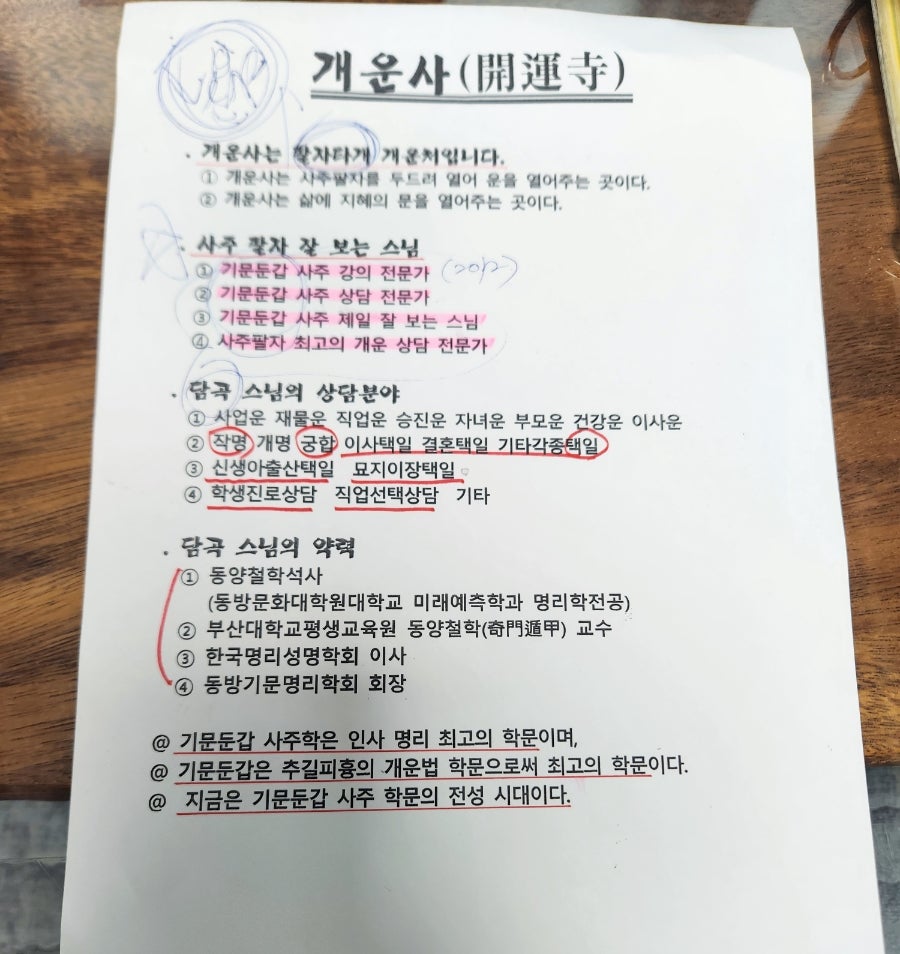 개운사(開運寺)
. 개운사는 팔자타개 개운처입니다.
① 개운사는 사주팔자를 두드려 열어 운을 열어주는 곳이다.
② 개운사는 삶에 지혜의 문을 열어주는 곳이다.
. 사주 팔자 잘 보는 스님
① 기문둔갑 사주 강의 전문가
② 기문둔갑 사주 상담 전문가
③ 기문둔갑 사주 제일 잘 보는 스님
④ 사주팔자 최고의 개운 상담 전문가
. 담곡 스님의 상담분야
① 사업운 재물운 직업운 승진운 자녀운 부모운 건강운 이사운
② 작명 개명 궁합 이사택일 결혼택일 기타각종택일
③ 신생아출산택일 묘지이장택일
④ 학생진로상담 직업선택상담 기타
. 담곡 스님의 약력
① 동양철학석사
(동방문화대학원대학교 미래예측학과 명리학전공)
② 부산대학교평생교육원 동양철학(奇門遁甲) 교수
③ 한국명리성명학회 이사
④ 동방기문명리학회 회장
@ 기문둔갑 사주학은 인사 명리 최고의 학문이며,
@ 기문둔갑은 추길피흉의 개운법 학문으로써 최고의 학문이다.
@ 지금은 기문둔갑 사주 학문의 전성 시대이다.